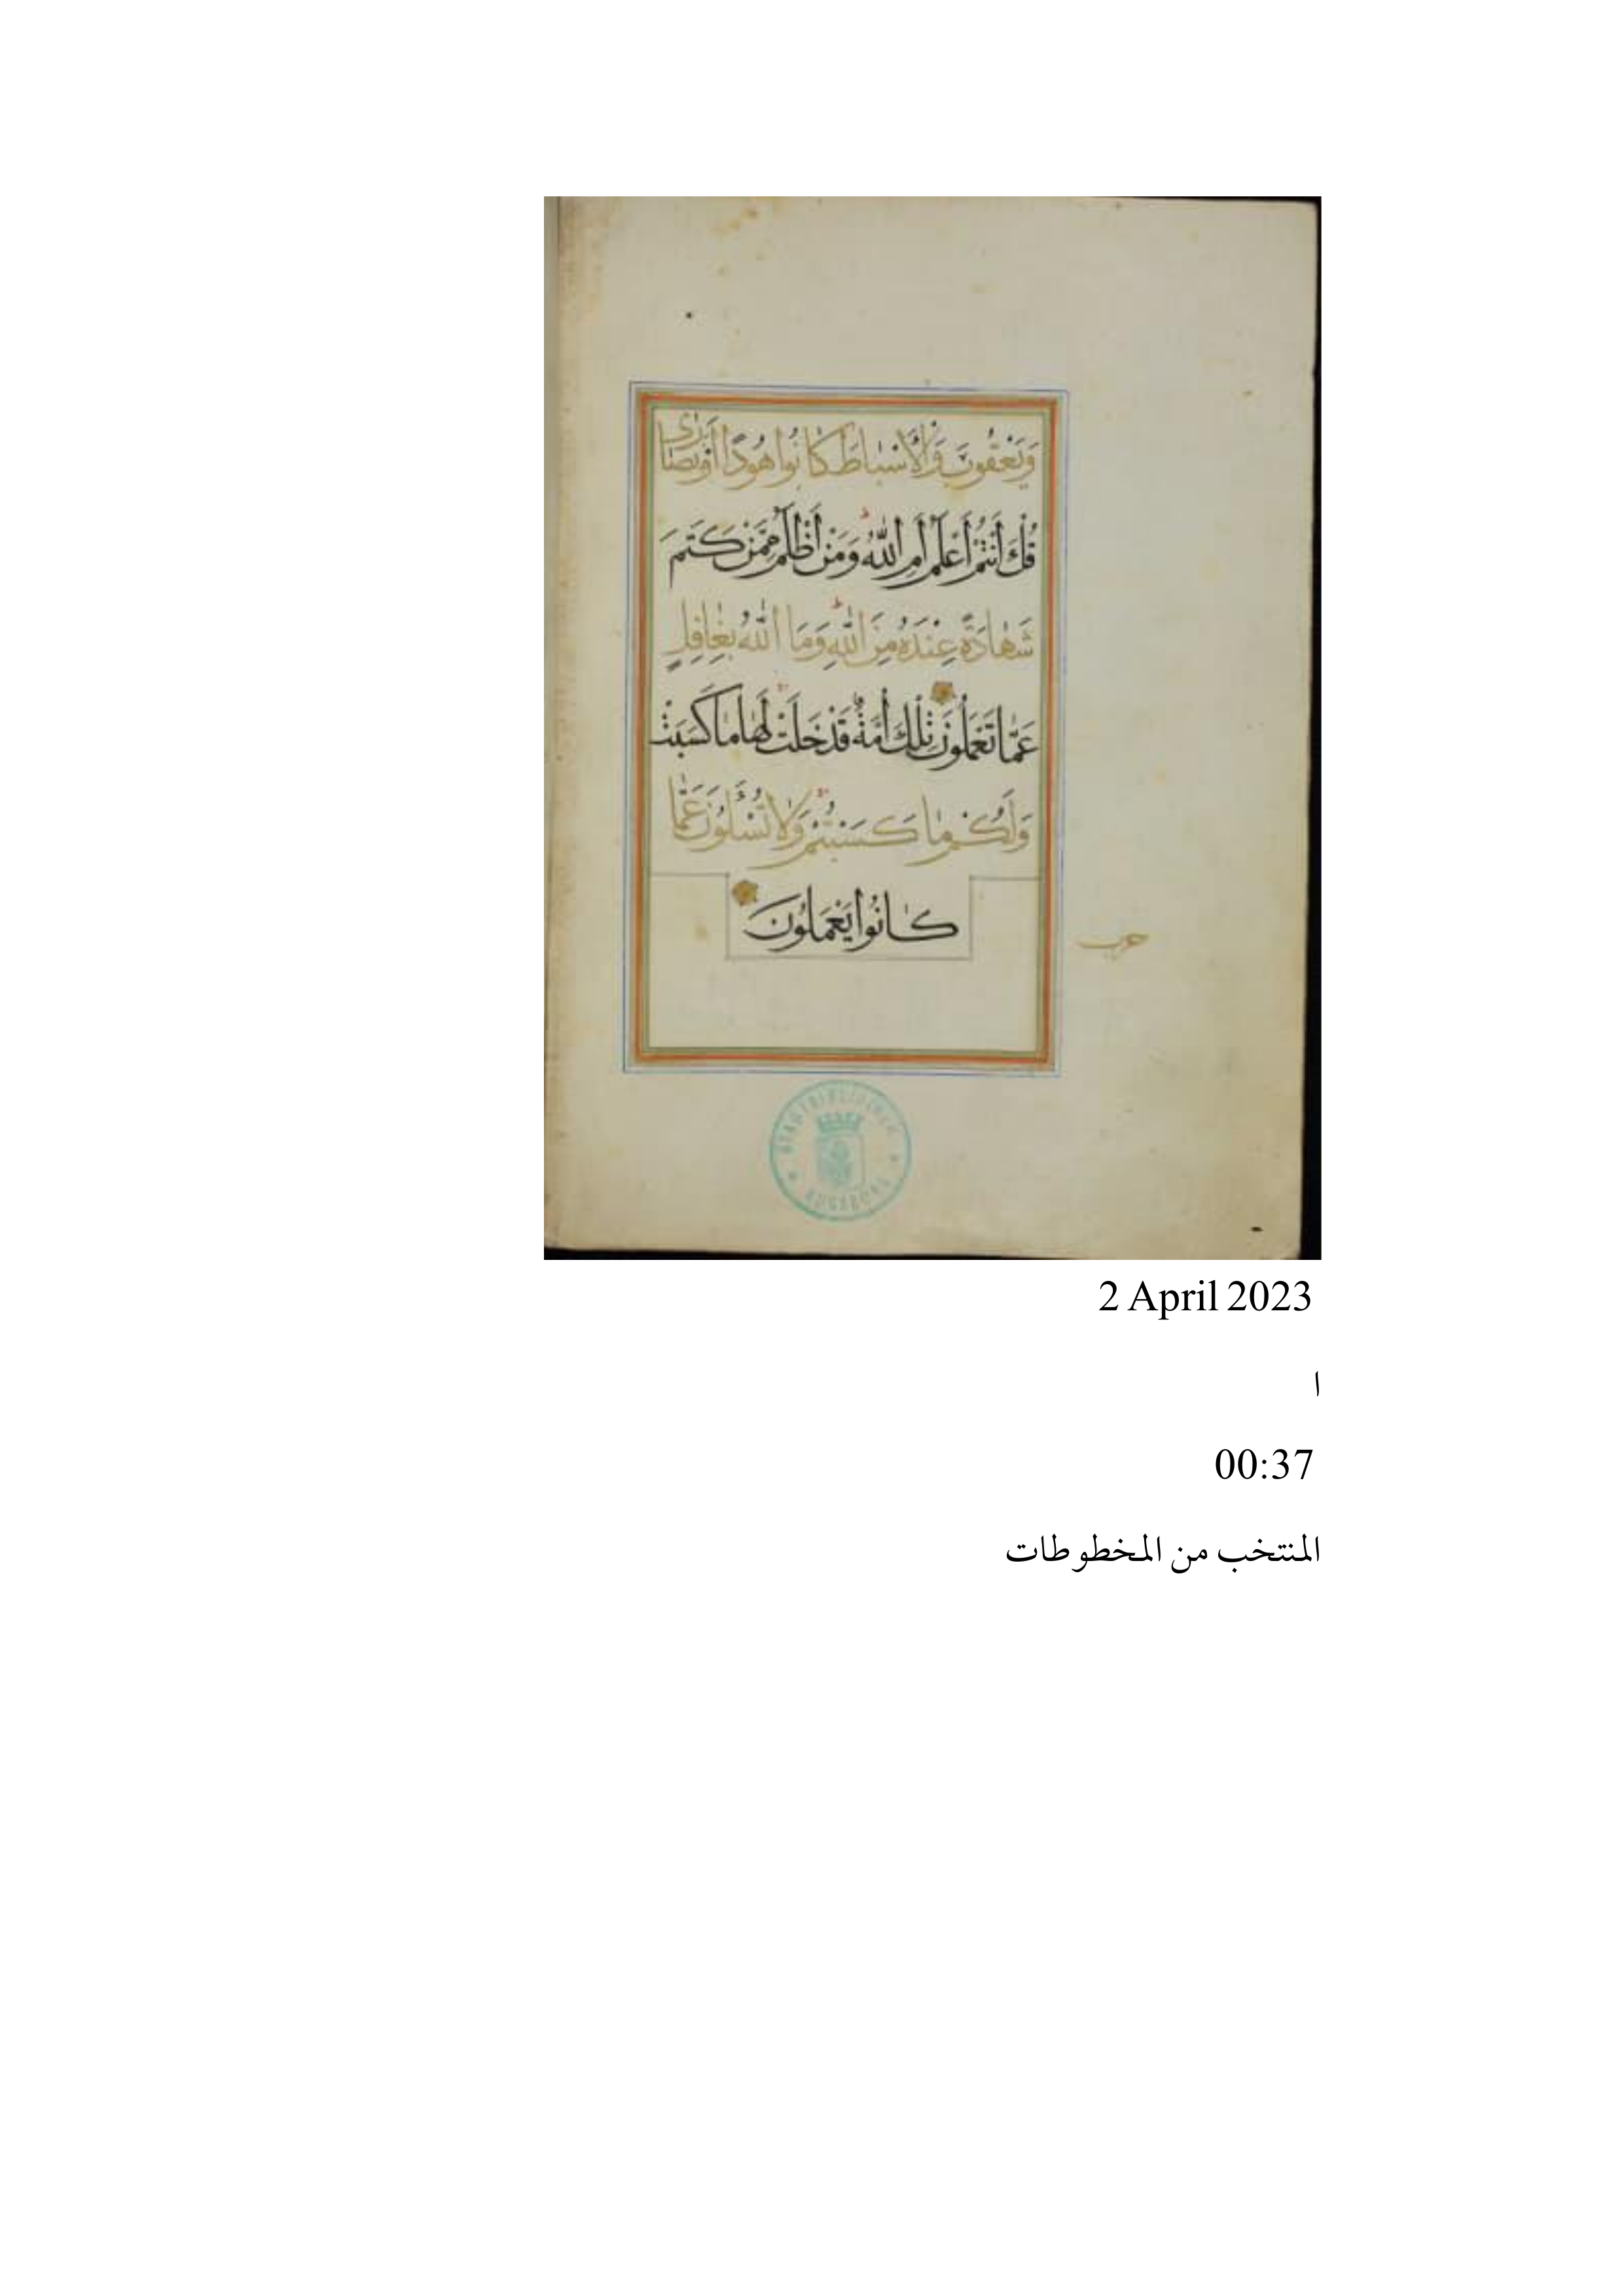 وَيَعْقُوبَ وَالْأَسْبَاطَ كَانُوا هُودًا أَوْ نَصَارَى
قُلْ أَأَنْتُمْ أَعْلَمُ أَمِ اللَّهُ وَمَنْ أَظْلَمُ مِمَّنْ كَتَمَ
شَهَادَةً عِنْدَهُ مِنَ اللَّهِ وَمَا اللَّهُ بِغَافِلٍ
عَمَّا تَعْمَلُونَ تِلْكَ أُمَّةٌ قَدْ خَلَتْ لَهَا مَا كَسَبَتْ
وَلَكُمْ مَا كَسَبْتُمْ وَلَا تُسْأَلُونَ عَمَّا
كَانُوا يَعْمَلُونَ
حزب
STADTBIBLIOTHEK AUGSBURG
2 April 2023
ا
00:37
المنتخب من المخطوطات